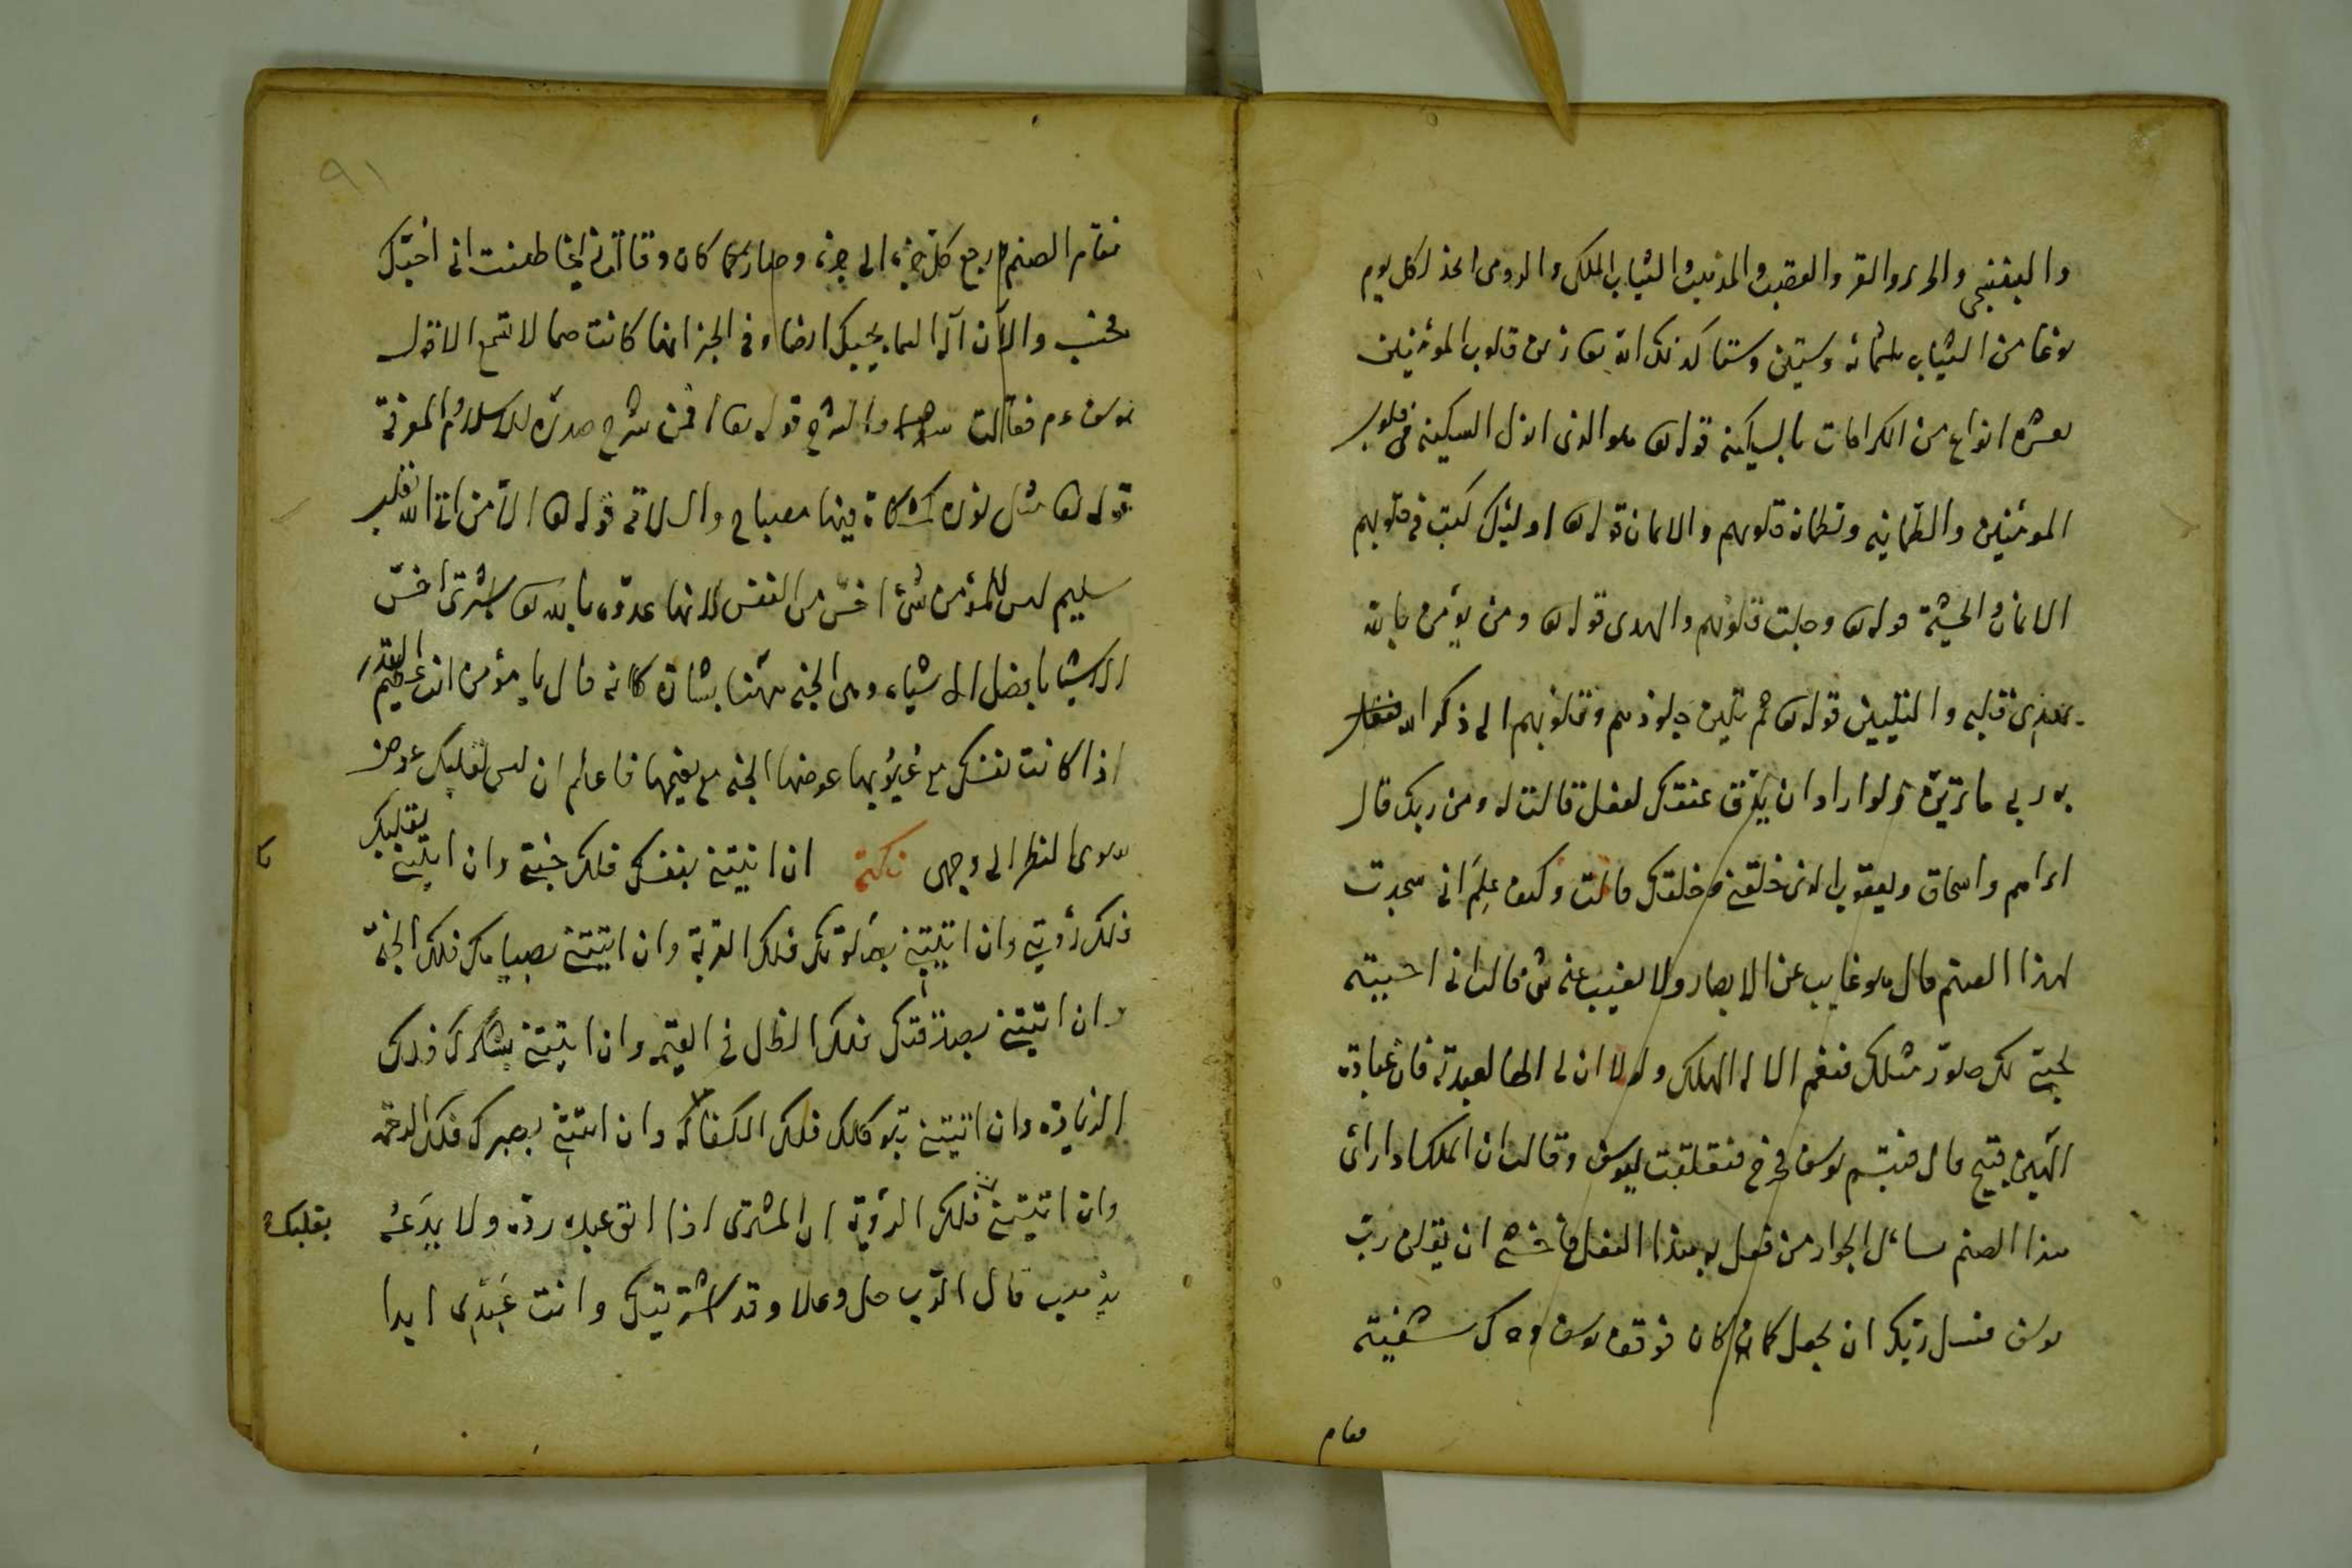 والبنفسجى والحرير والقز والقصب والمذهب والثياب الملكى والرومى اتخذ لكل يوم
نوعا من الثياب ثلثمائه وستين وستا كذلك الله تعا زين قلوب المؤمنين
بعشرة انواع من الكرامات بالسكينه قوله تعا هو الذى انزل السكينه فى قلوب
المومنين والطمانينه وتطمان قلوبهم والايمان قوله تعا اوليئك كتب فى قلوبهم
الايمان والخشية قوله تعا وجلت قلوبهم والهدى قوله تعا ومن يؤمن بالله
يهدى قلبه والتليين قوله تعا ثم تلين جلودهم وقلوبهم الى ذكر الله فقال
هو ربى ما ترين ولو اراد ان عنقك لفعل قالت له ومن ربك قال
ابراهيم واسحاق ويعقوب الذى خلقنى وخلقك قالت وكيف علم انى سجدت
لهذا الصنم قال هو غايب عن الابصار ولا يغيب عنه شئ قالت انى احببته
لحبتى لك صور مثلك فنعم الاله الهك ولولا ان لى الها لعبدته فان عبادة
الهين قبيح قال فتبسم يوسف وقالت ان الملك اذا راى
هذا الصنم سائل الجوار من فعل به هذا الفعل فاخشى ان يقلن رب
يوسف فسل ربك ان يجعل كما كان يوسف
فقام
٩١
فقام الصنم رجع كل جزء الى جزء وصار كما كان وقالت انى احبك
محب والان اله السما يحبك ايضا وفى الخبر انها كانت صما لا تسمع الا قول
يوسف ءم فقالت والشرح قوله تعا افمن شرح صدره للاسلام والمعرفة
قوله تعا مثل نوره كمشكاة فيها مصباح والسلامة قوله تعا الا من اتى الله بقلب
سليم ليس للمؤمن شئ اخس من النفس لانها عدوه بالله تعا اشترى اخس
الاشيا بافضل الاشياء وهى الجنه بشارة كانه قال يا مؤمن انت عظيم القدر
اذا كانت نفسك مع عيوبها عوضها الجنه مع نعيمها فاعلم ان ليس لقلبك عوض
سوى النظر الى وجهى نكتة ان اتيتنى بنفسك فلك جنتى وان اتيتنى بقلبك
فلك رؤيتى وان اتيتنى بصلوتك فلك القربة وان اتيتنى بصيامك فلك الجنة
وان اتيتنى بصدقتك فلك الظل فى القيمه وان اتيتنى بشكرك فلك
الزيادة وان اتيتنى بتوكلك فلك الكفاية وان اتيتنى بصبرك فلك الرحمة
وان اتيتنى فلك الرؤية ان المشترى اذا ابق عبده رده ولا يدعه
بقلبك
يذهب قال الرب جل وعلا وقد اشتريتك وانت عبدى ابدا